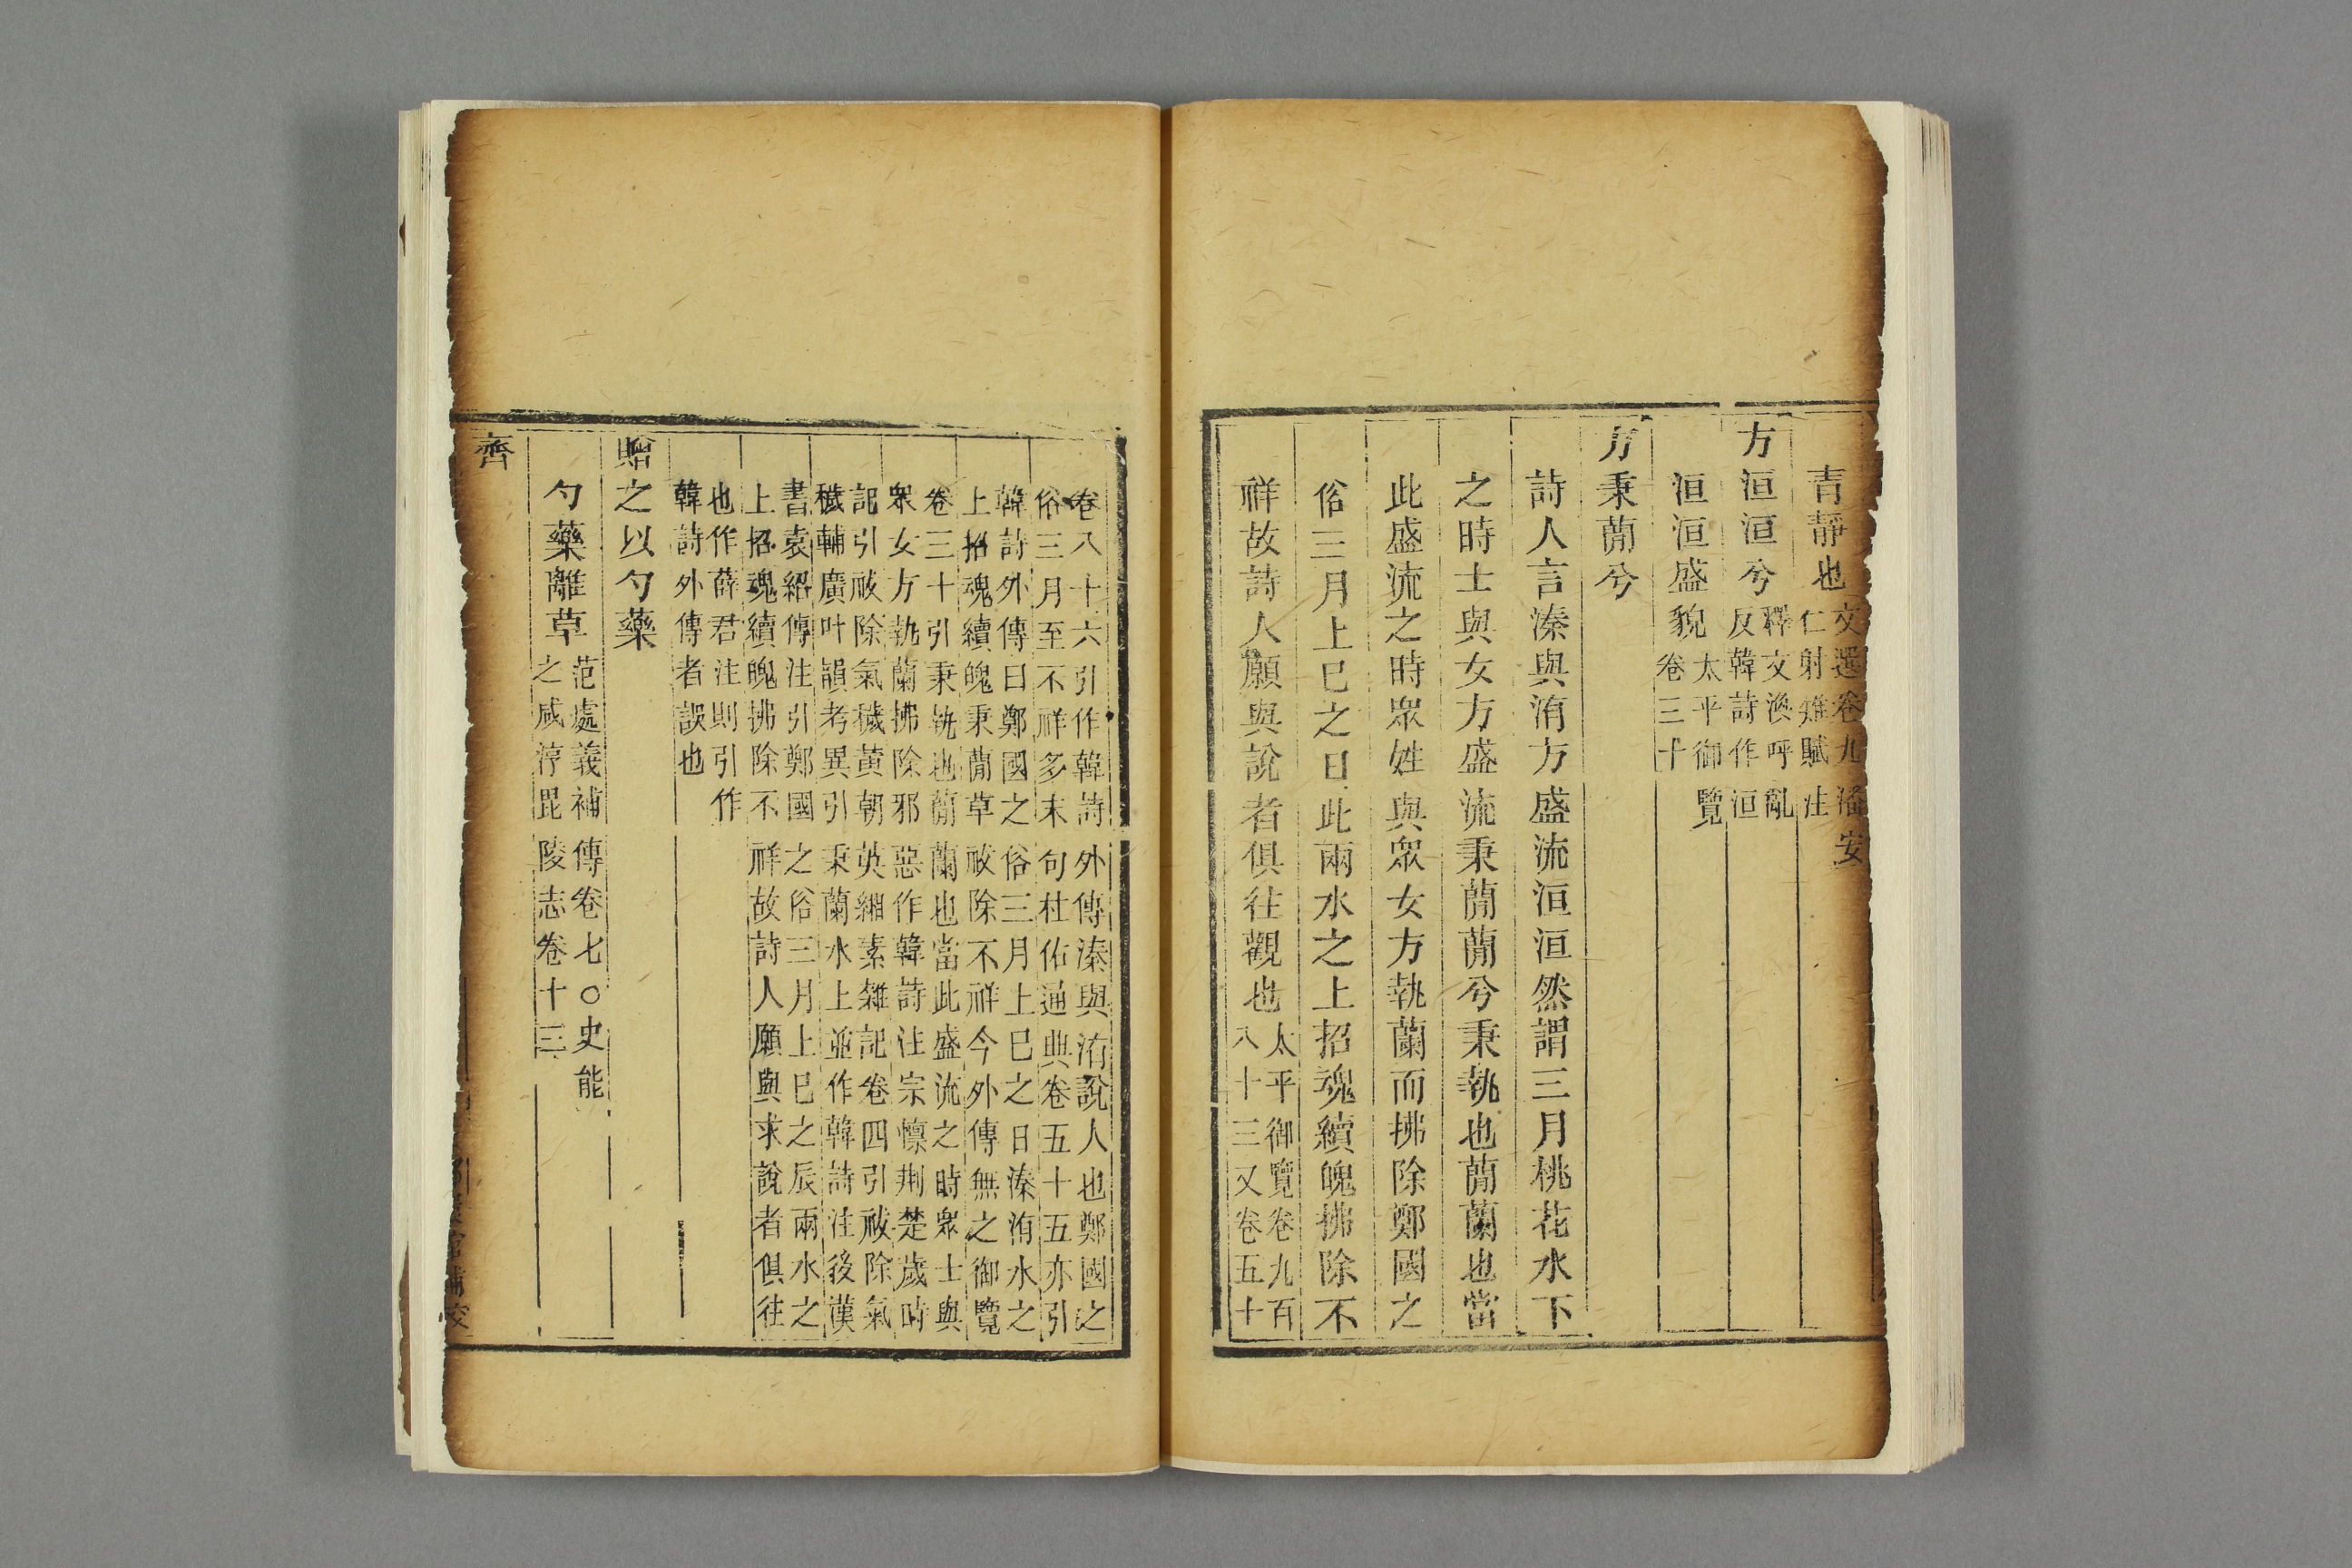 青靜也文選卷九潘安
仁射雉賦注
方洹洹兮釋文渙呼亂
反韓詩作洹
洹洹盛貌太平御覽
卷三十
方秉蕑兮
詩人言溱與洧方盛流洹洹然謂三月桃花水下
之時士與女方盛流秉蕑蕑兮秉執也蕑蘭也當
此盛流之時眾姓與眾女方執蘭而拂除鄭國之
俗三月上巳之日此兩水之上招魂續魄拂除不
祥故詩人願與說者俱往觀也太平御覽卷九百
八十三又卷五十
卷八十六引作韓詩外傳溱與洧說人也鄭國之
俗三月至不祥多末句杜佑通典卷五十五亦引
韓詩外傳曰鄭國之俗三月上巳之日溱洧水之
上招魂續魄秉蕑草祓除不祥今外傳無之御覽
卷三十引秉執也蕑蘭也當此盛流之時眾士與
眾女方執蘭拂除邪惡作韓詩注宗懍荆楚歲時
記引祓除氣穢黃朝英緗素雜記卷四引祓除氣
穢輔廣叶韻考異引秉蘭水上並作韓詩注後漢
書袁紹傳注引鄭國之俗三月上巳之辰兩水之
上招魂續魄拂除不祥故詩人願與求說者俱往
也作薛君注則引作
韓詩外傳者誤也
贈之以勺藥
勺藥離草范處義補傳卷七○史能
之咸淳毘陵志卷十三
齊